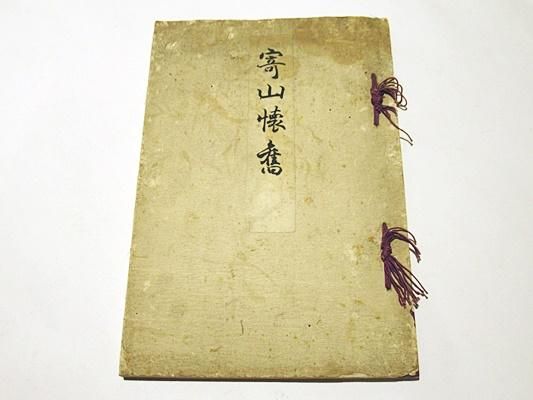 寄山懐舊